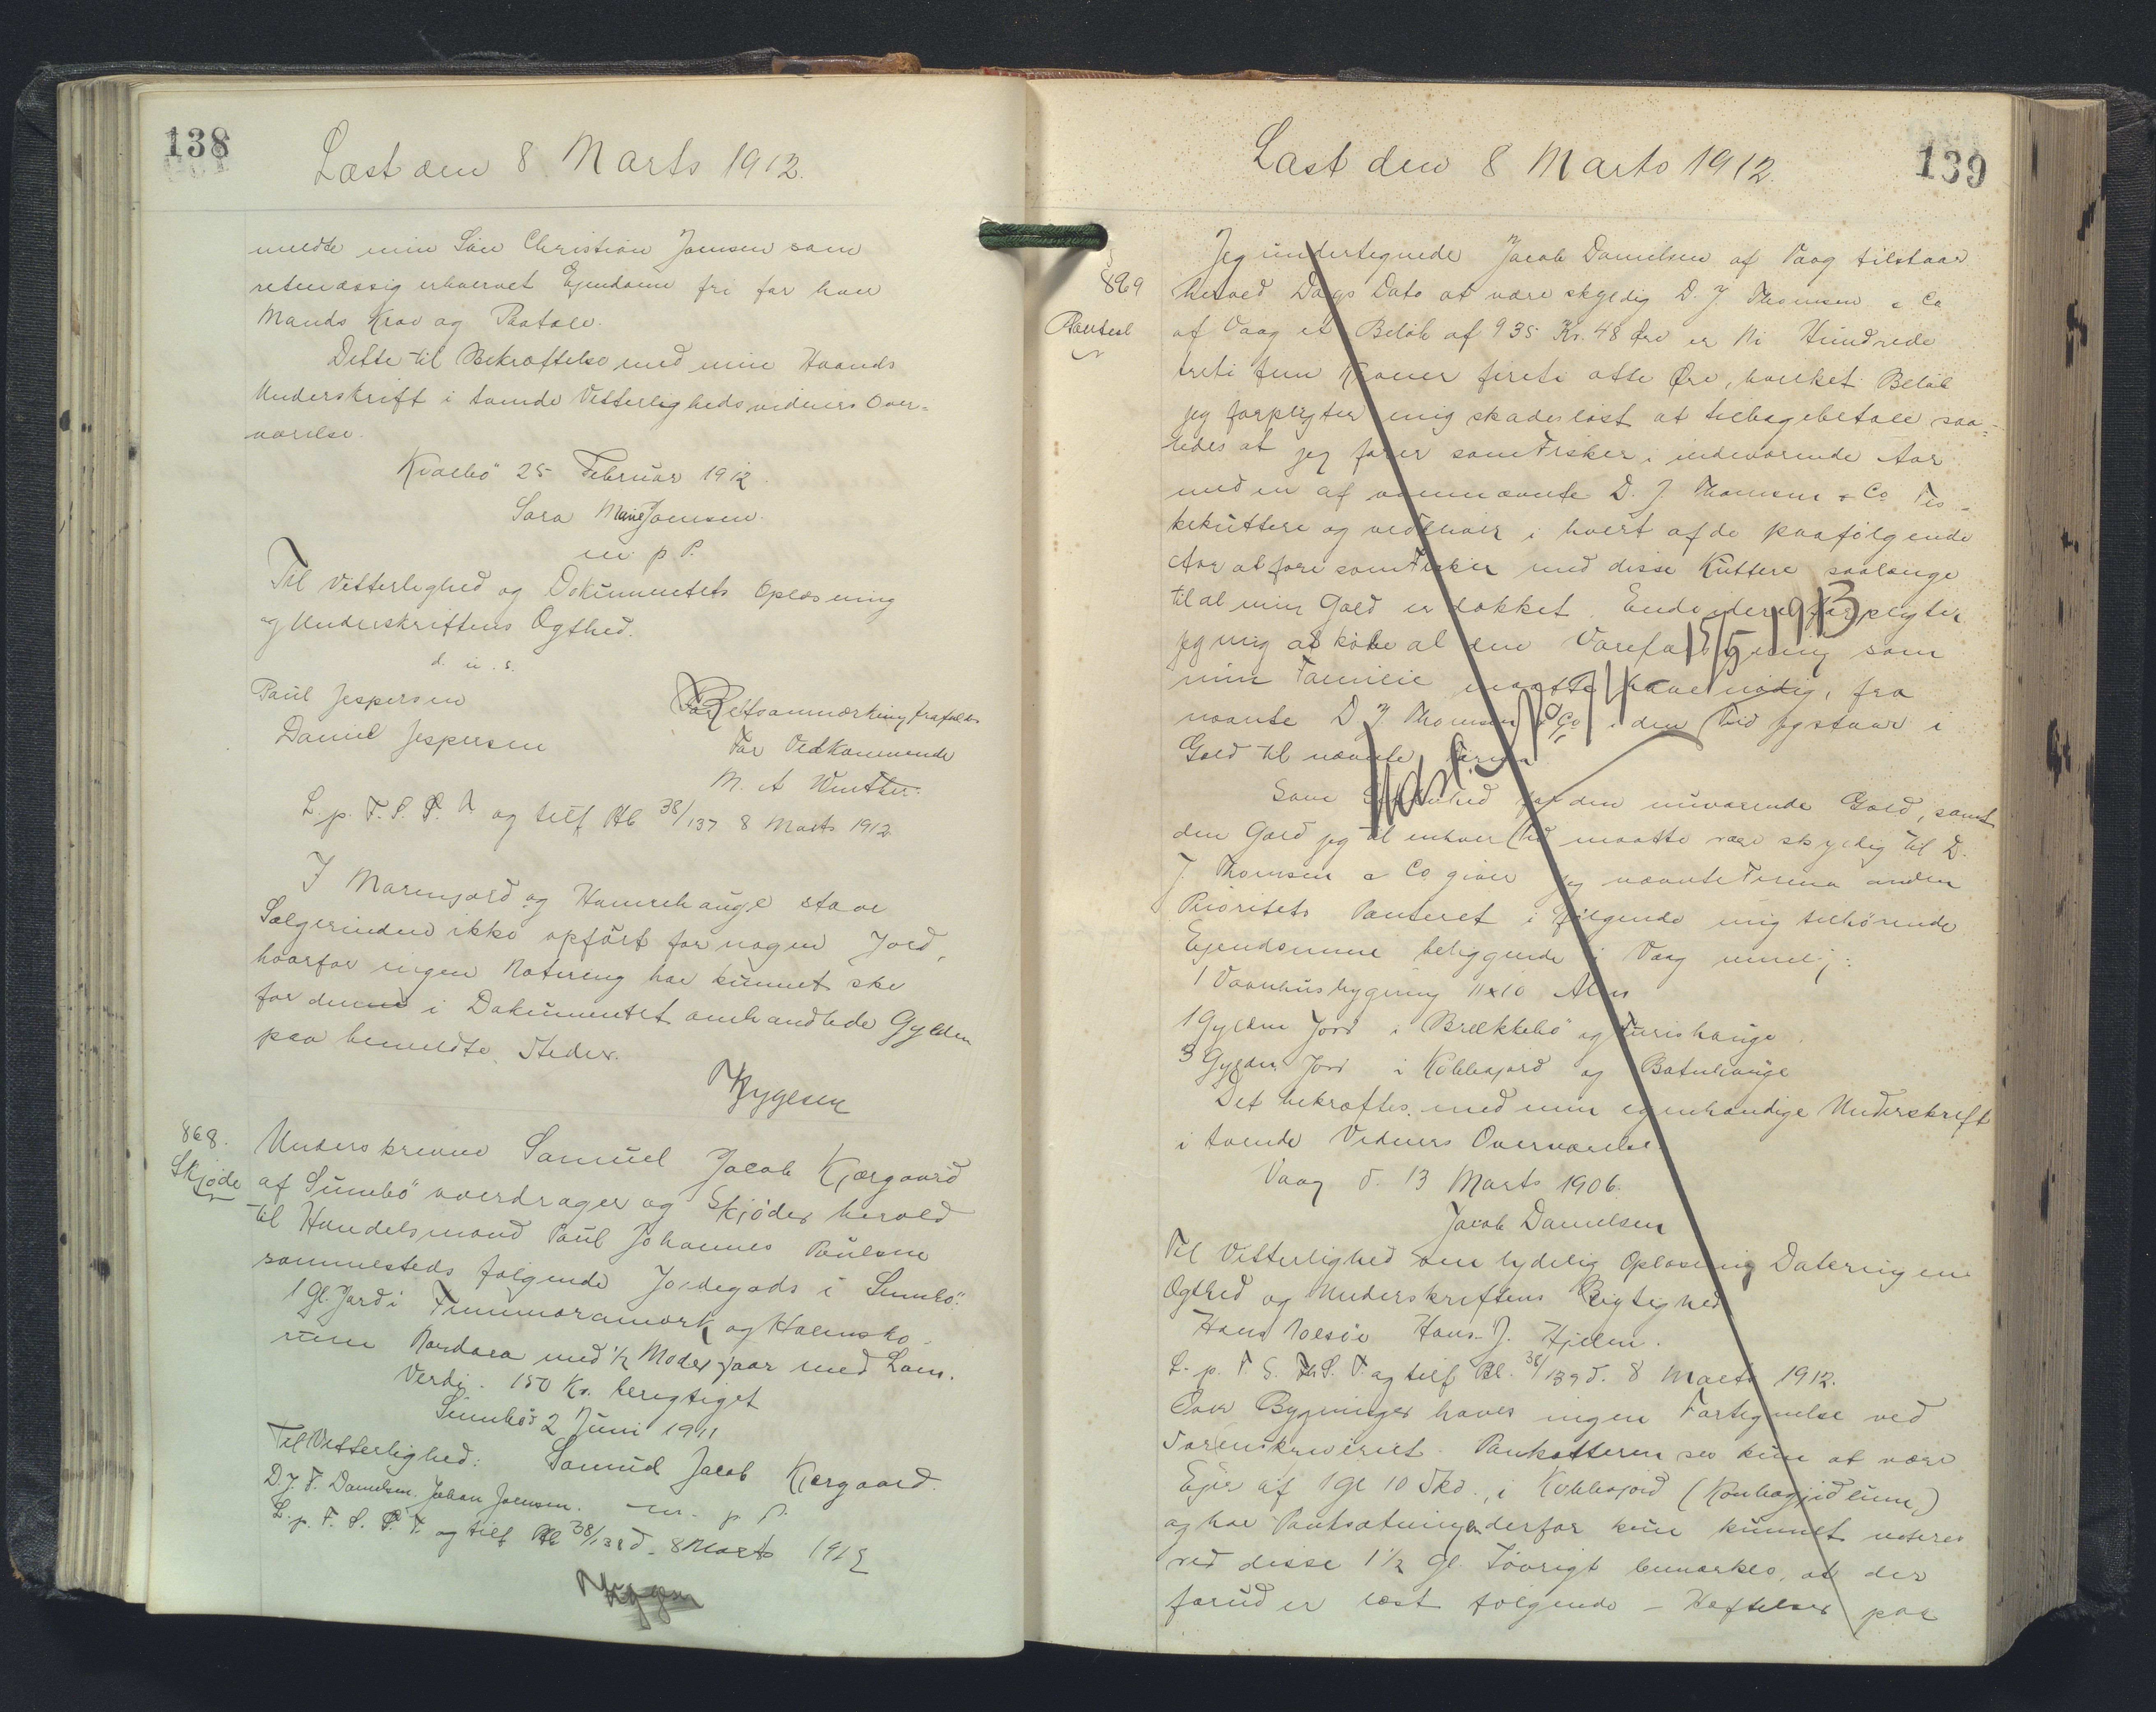 138
Læst den 8. Marts 1912.
meldte min Søn Christian Joensen som
retmæssig erhvervet Ejendom fri for hver
Mands Krav og Paatale.
Dette til Bekræftelse med min Haands
Underskrift i tvende Vitterlighedsvidners Over-
værelse.
Kvalbö 25 Februar 1912.
Sara Marie Joensen.
m. p. P.
Til Vitterlighed og Dokumentets Oplæsning
og Underskriftens Ægthed.
d. u. s.
Paul Jespersen
Daniel Jespersen
Retsanmærkning frafaldes
For Vedkommende
M. A Winther.
L. p. F. S. P. V og tilf Pb 38/137 8 Marts 1912
I Marengjord og Hamrehauge staar
Sælgerinden ikke opført for nogen Jord,
hvorfor ingen Notering har kunnet ske
for denne i Dokumentet omhandlede Gylden
paa bemeldte Steder.
868.
Skjøde
Underskrevne Samuel Jacob Kjærgaard
af Sumbö overdrager og Skjøder herved
til Handelsmand Paul Johannes Poulsen
sammesteds følgende Jordegods i Sumbö:
1 Gl. Jord i
med 1/2 Moderfaar med Lam.
Verdi. 150 Kr. berigtiget
Sumbö 2 Juni 1911
Til Vitterlighed: Samuel Jacob Kjærgaard.
D. J. F. Danielsen. Johan Joensen. m. p. P.
L. p. F. S. P. V. og tilf Pb 38/138 d. 8 Marts 1912
139
Læst den 8 Marts 1912.
869
Pantebl
Jeg undertegnede Jacob Danielsen af Vaag tilstaar
herved Dags Dato at være skyldig D. J. Thomsen & Co
af Vaag et Beløb af 935 Kr. 48 Øre er Ni Hundrede
treti fem Kroner fireti otte Øre, hvilket Beløb
jeg forpligter mig skadesløst at tilbagebetale saa-
ledes at jeg farer som Fisker i indeværende Aar
med en af ovennævnte D. J. Thomsen & Co Fis-
kekuttere og vedbliver i hvert af de paafølgende
Aar at fare som Fisker med disse Kuttere saalænge
til al min Gæld er dækket. Endvidere forpligter
jeg mig at købe al den som
min Familie maatte have nödig, fra
nævnte D. J. Thomsen & Co i den Tid jeg staar i
Gæld til nævnte Firma
Som Sikkerhed for den nuværende Gæld, samt
den Gæld jeg til enhver Tid maatte være skyldig til D.
J. Thomsen & Co giver jeg nævnte Firma anden
Prioritets Panteret i følgende mig tilhørende
Ejendomme beliggende i Vaag nemlig:
1 Vaanhusbygning 11x10 Alen
1 Gylden Jord i Brekkebö og Turishauge
3 Gylden Jord i Kobbagjord og Botnhauge
Det bekræftes med min egenhændige Underskrift
i tvende Vidners Overværelse.
Vaag d. 13 Marts 1906.
Jacob Danielsen
Til Vitterlighed om tydelig Oplæsning Dateringens
Ægthed og Underskriftens Rigtighed
Hans Nolsøe Hans J. Hjelm.
L. p. F. S. P. V og tilf Bl. 38/139 d. 8 Marts 1912.
Over Bygninger haves ingen Fortegnelse ved
Sorenskriveriet. Pantsætteren ses kun at være
Ejer af 1 gl 10 Skd., i Kobbagjord
og har Pantsætningen derfor kun kunnet noteres
ved disse 1 1/2 Gl. Iøvrigt bemærkes, at der
forud er læst følgende Hæftelser paa
15/5 1913